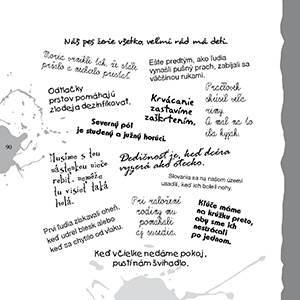 Náš pes žerie všetko, veľmi rád má deti.
Morec vznikli tak, že stále
pršalo a nechcelo prestať.
Ešte predtým, ako ľudia
vynašli pušný prach, zabíjali sa
väčšinou rukami.
Odtlačky
prstov pomáhajú
zlodeja dezinfikovať.
Krvácanie
zastavíme
zaškrtením.
Pravěkovek
chrúsil
A mal na to
iba kyjak.
Severný pól
je studený a južný horúci.
Musíme s tou
nástenkou niečo
robiť, nemôže
tu visieť taká
holá.
Dedičnosť je, keď dcéra
vyzerá ako otecko.
Slovania sa na našom území
usadili, keď ich boleli nohy.
Prví ľudia získavali oheň,
keď udrel blesk alebo
keď sa chytilo od vlaku.
Pri založení
rodiny mu
pomáhali
aj susedia.
Kľúče máme
na krúžku preto,
aby sme ich
nestrácali
po jednom.
Keď včielke nedáme pokoj,
pustí nám švihadlo.
90